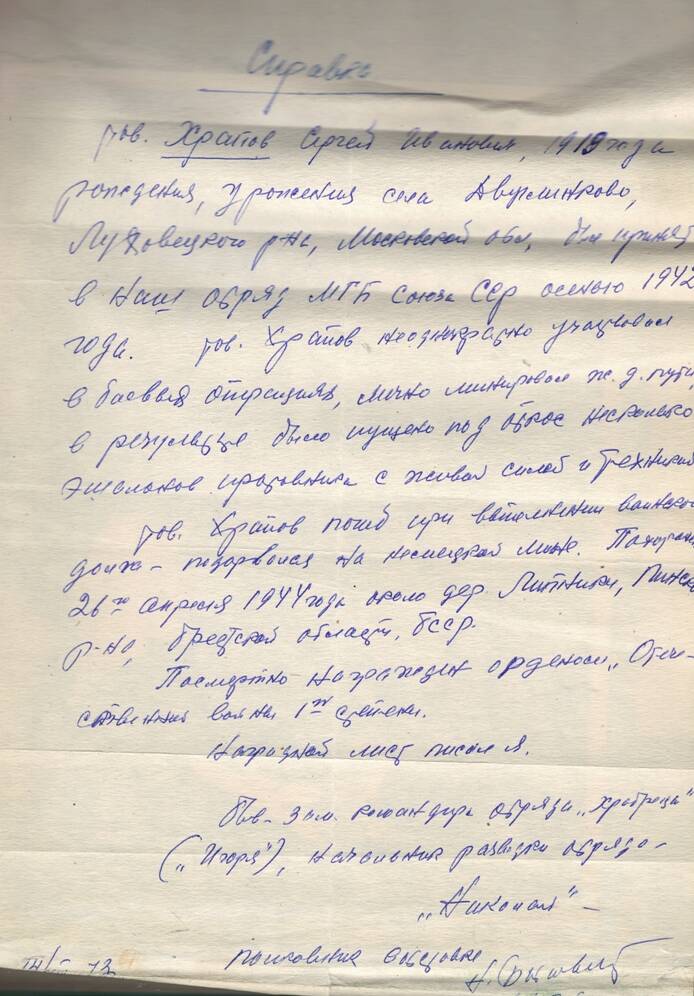 Справка
тов. Храпов Сергей Иванович, 1919 года
рождения, уроженец села
Луховецкого р-на, Московской обл, был принят
в наш отряд МГБ Союза ССР осенью 1942
года. тов. Храпов неоднократно участвовал
в боевых операциях, лично минировал ж.д. пути
в результате было пущено под откос несколько
эшелонов противника с живой силой и техникой
тов. Храпов погиб при выполнении воинского
долж - подорвался на немецкой мине. Похоронен
26го апреля 1944 года около дер. Липники, Пинск
р-на, Брестской области, БССР.
Посмертно награжден орденом „Отече-
ственная война 1й степени.
Наградной лист писал я.
Быв. зам. командира отряда „Храбрецы"
(„Игоря"), начальник разведки отряда -
„Николай" -
полковник в отставке